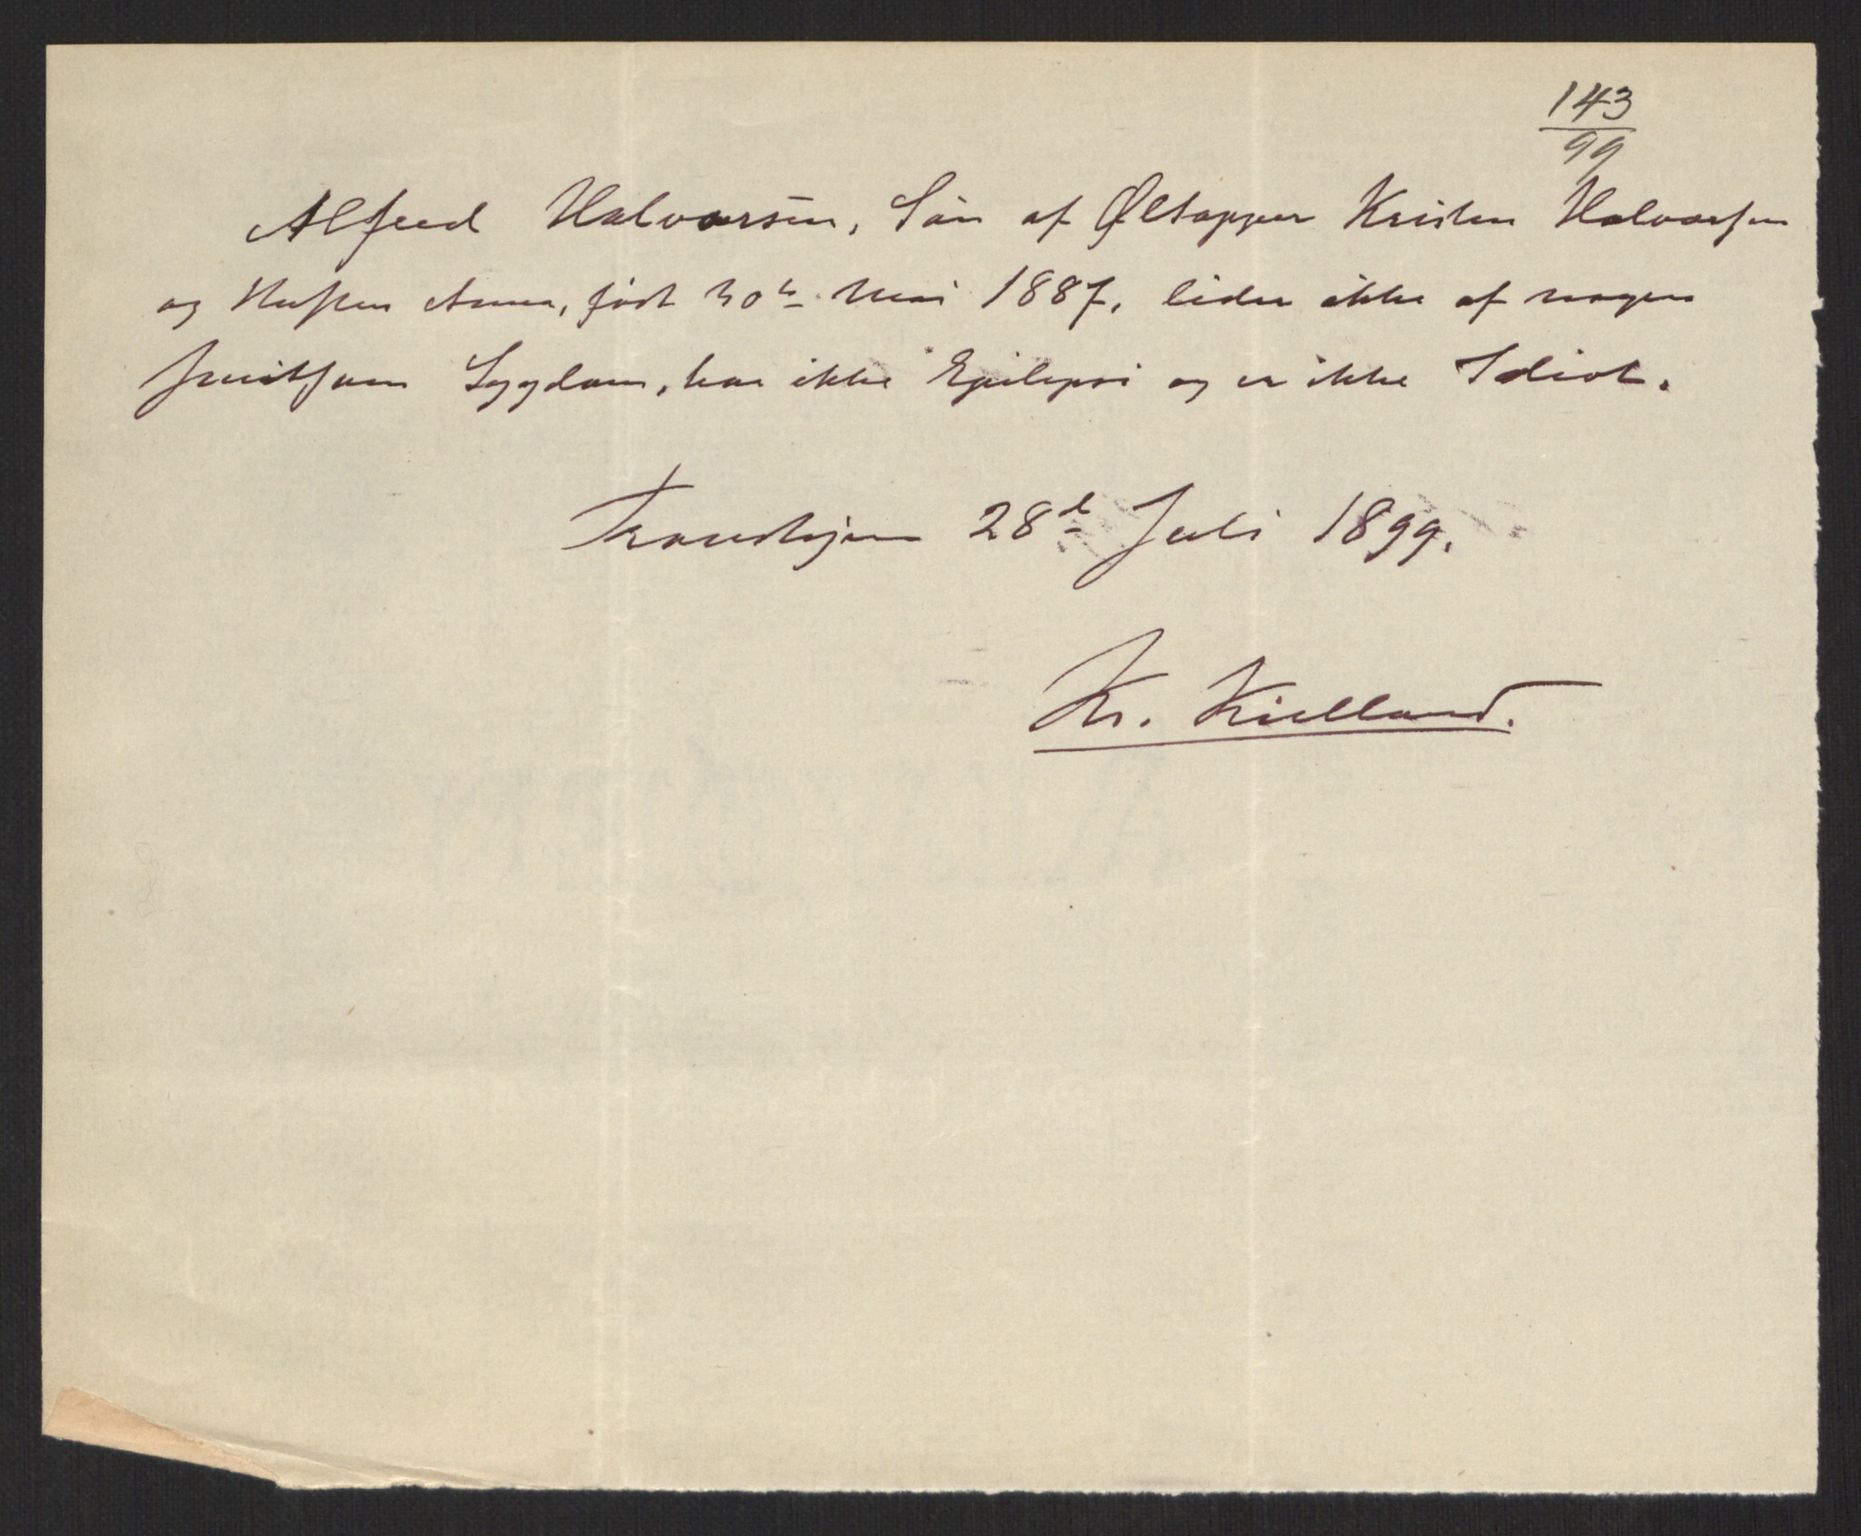 143
99
Alfred Halvorsen, Søn af Øltapper Kristen Halvorsen
og Hustru Anna, født 30te Mai 1887, lider ikke af nogen
smitsom Sygdom, har ikke Epilepsi og er ikke Idiot.
Trondhjem 28d Juli 1899.
Kr. Kielland.